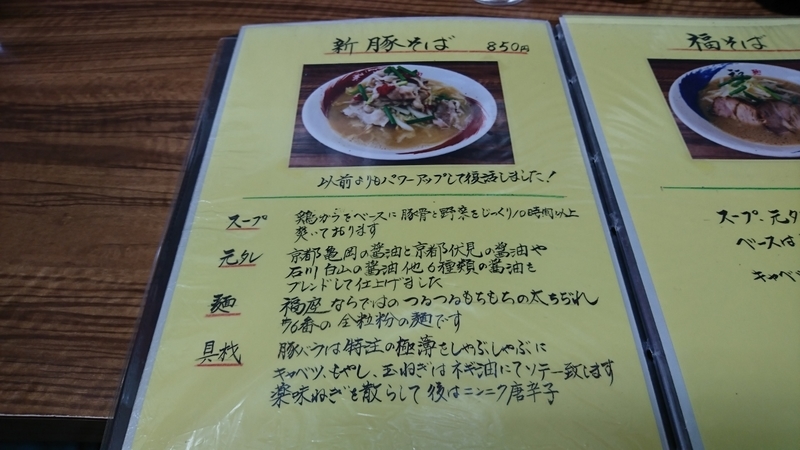 新 豚そば 850円
以前よりもパワーアップして復活しました!
スープ 鶏がらをベースに豚骨と野菜をじっくり10時間以上
焚いております
元タレ 京都亀岡の醤油と京都伏見の醤油や
石川白山の醤油他6種類の醤油を
ブレンドして仕上げました
麺 福座ならではのつるつるもちもちの太ちぢれ
番の全粒粉の麺です
具材 豚バラは特注の極薄をしゃぶしゃぶに
キャベツ、もやし、玉ねぎはネギ油にてソテー致します
薬味ねぎを散らして 後はニンニク唐辛子
福そば
スープ、元タ
ベースは
キャベ